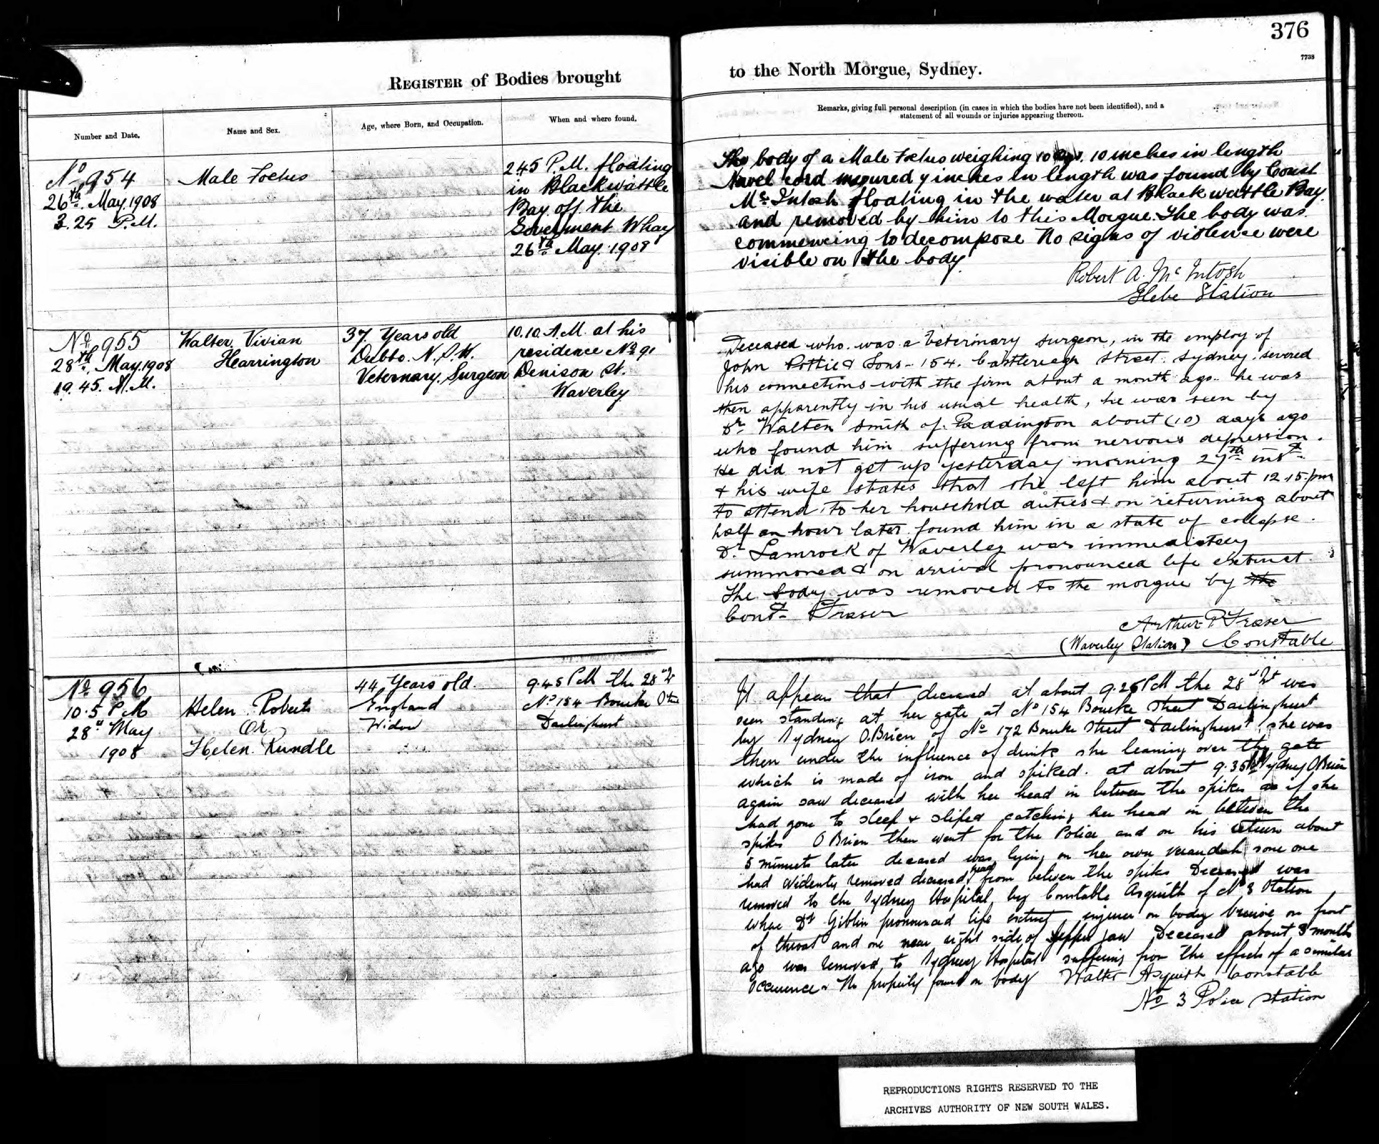 376
7738
REGISTER of Bodies brought
to the North Morgue, Sydney.
Number and Date.
Name and Sex.
Age, where Born, and Occupation.
When and where found.
Remarks, giving full personal description (in cases in which the bodies have not been identified), and a
statement of all wounds or injuries appearing thereon.
No 954
26th May 1908
3.25 P.M.
Male Foetus
245 P.M. floating
in Blackwattle
Bay off the
Goverment Wharf
26th May. 1908
The body of a Male Foetus weighing 10 10 inches in length
Navel cord 9 inches in length was found by Const
Mc Intosh floating in the water at Blackwattle Bay
and removed by him to this Morgue. The body was
commencing to decompose No signs of violence were
visible on the body.
Robert A. Mc Intosh
Glebe Station
No 955
28th May, 1908
45 A.M.
Walter Vivian
Hearrington
37 Years old
Dubbo. N.S.W.
Veternary Surgeon
10.10 A.M. at his
residence No 91
Denison St.
Waverley
Deceased who was a Veterinary surgeon, in the employ of
John Pottie & Sons - 154. Castlereagh Street. Sydney. severed
his connections with the firm about a month ago. he was
then apparently in his usual health, he was seen by
Dr Walten Smith of Paddington about (10) days ago
who found him suffering from nervous depression.
He did not get up yesterday morning 27th inst
& his wife states that she left him about 12.15 pm
to attend to her household duties & on returning about
half an hour later found him in a state of collapse.
Dr Lamrock of Waverley was immediately
summoned & on arrival pronounced life extinct.
The body was removed to the morgue by the
Const. Fraser
Arthur P Fraser
(Waverley Station) Constable
No 956
10.5 P.M
28" May
1908
Helen Roberts
Or
Helen Rundle
44 Years old.
England
Widow
9.45 P.M the 28th
No 154 Bourke St
Darlinghurst
It appears that deceased at about 9.25 P.M the 28th was
seen standing at her gate at No 154 Bourke Street Darlinghurst
by Sydney O.Brien of No 172 Bourke Street Darlinghurst, she was
then under the influence of drink she leaning over the gate
which is made of iron and spiked. at about 9.35 Sydney O'Brien
again saw deceased with her head in between the spikes as if she
had gone to sleep & sliped catching her head in between the
spikes O Brien then went for the Police and on his return about
5 minuets later deceased was lying on her own verandah some one
had evidently removed deceased head from between the spikes Deceased was
removed to the Sydney Hospital, by Constable Asquith of No 3 Station
where Dr Giblin pronounced life extinct injuries on body bruise on front
of throat and one near right side of upper jaw Deceased about 3 months
ago was removed to Sydney Hospital suffering from the effects of a similar
occurence. No property found on body Walter Asquith Constable
No 3 Police Station
REPRODUCTIONS RIGHTS RESERVED TO THE
ARCHIVES AUTHORITY OF NEW SOUTH WALES.